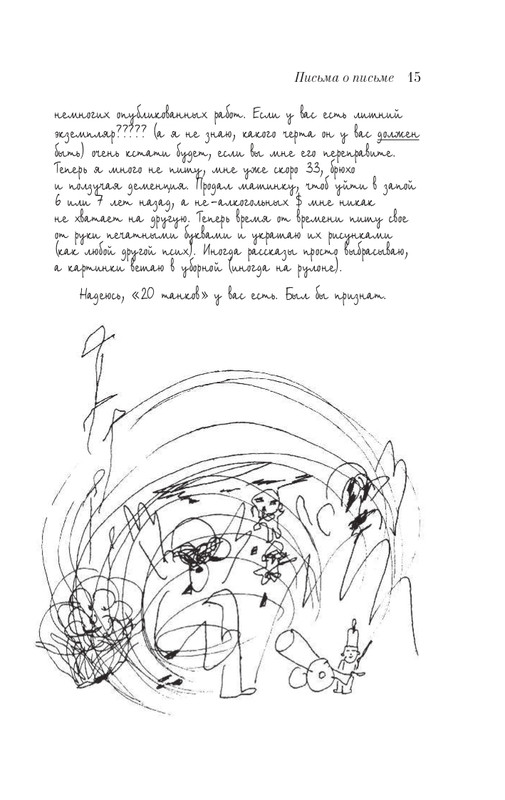 Письма о письме 15
немногих опубликованных работ. Если у вас есть лишний
экземпляр????? (а я не знаю, какого черта он у вас должен
быть) очень кстати будет, если вы мне его переправите.
Теперь я много не пишу, мне уже скоро 33, брюхо
и ползучая деменция. Продал машинку, чтоб уйти в запой
6 или 7 лет назад, а не-алкогольных $ мне никак
не хватает на другую. Теперь время от времени пишу свое
от руки печатными буквами и украшаю их рисунками
(как любой другой псих). Иногда рассказы просто выбрасываю,
а картинки вешаю в уборной (иногда на рулоне).
Надеюсь, «20 танков» у вас есть. Был бы признат.